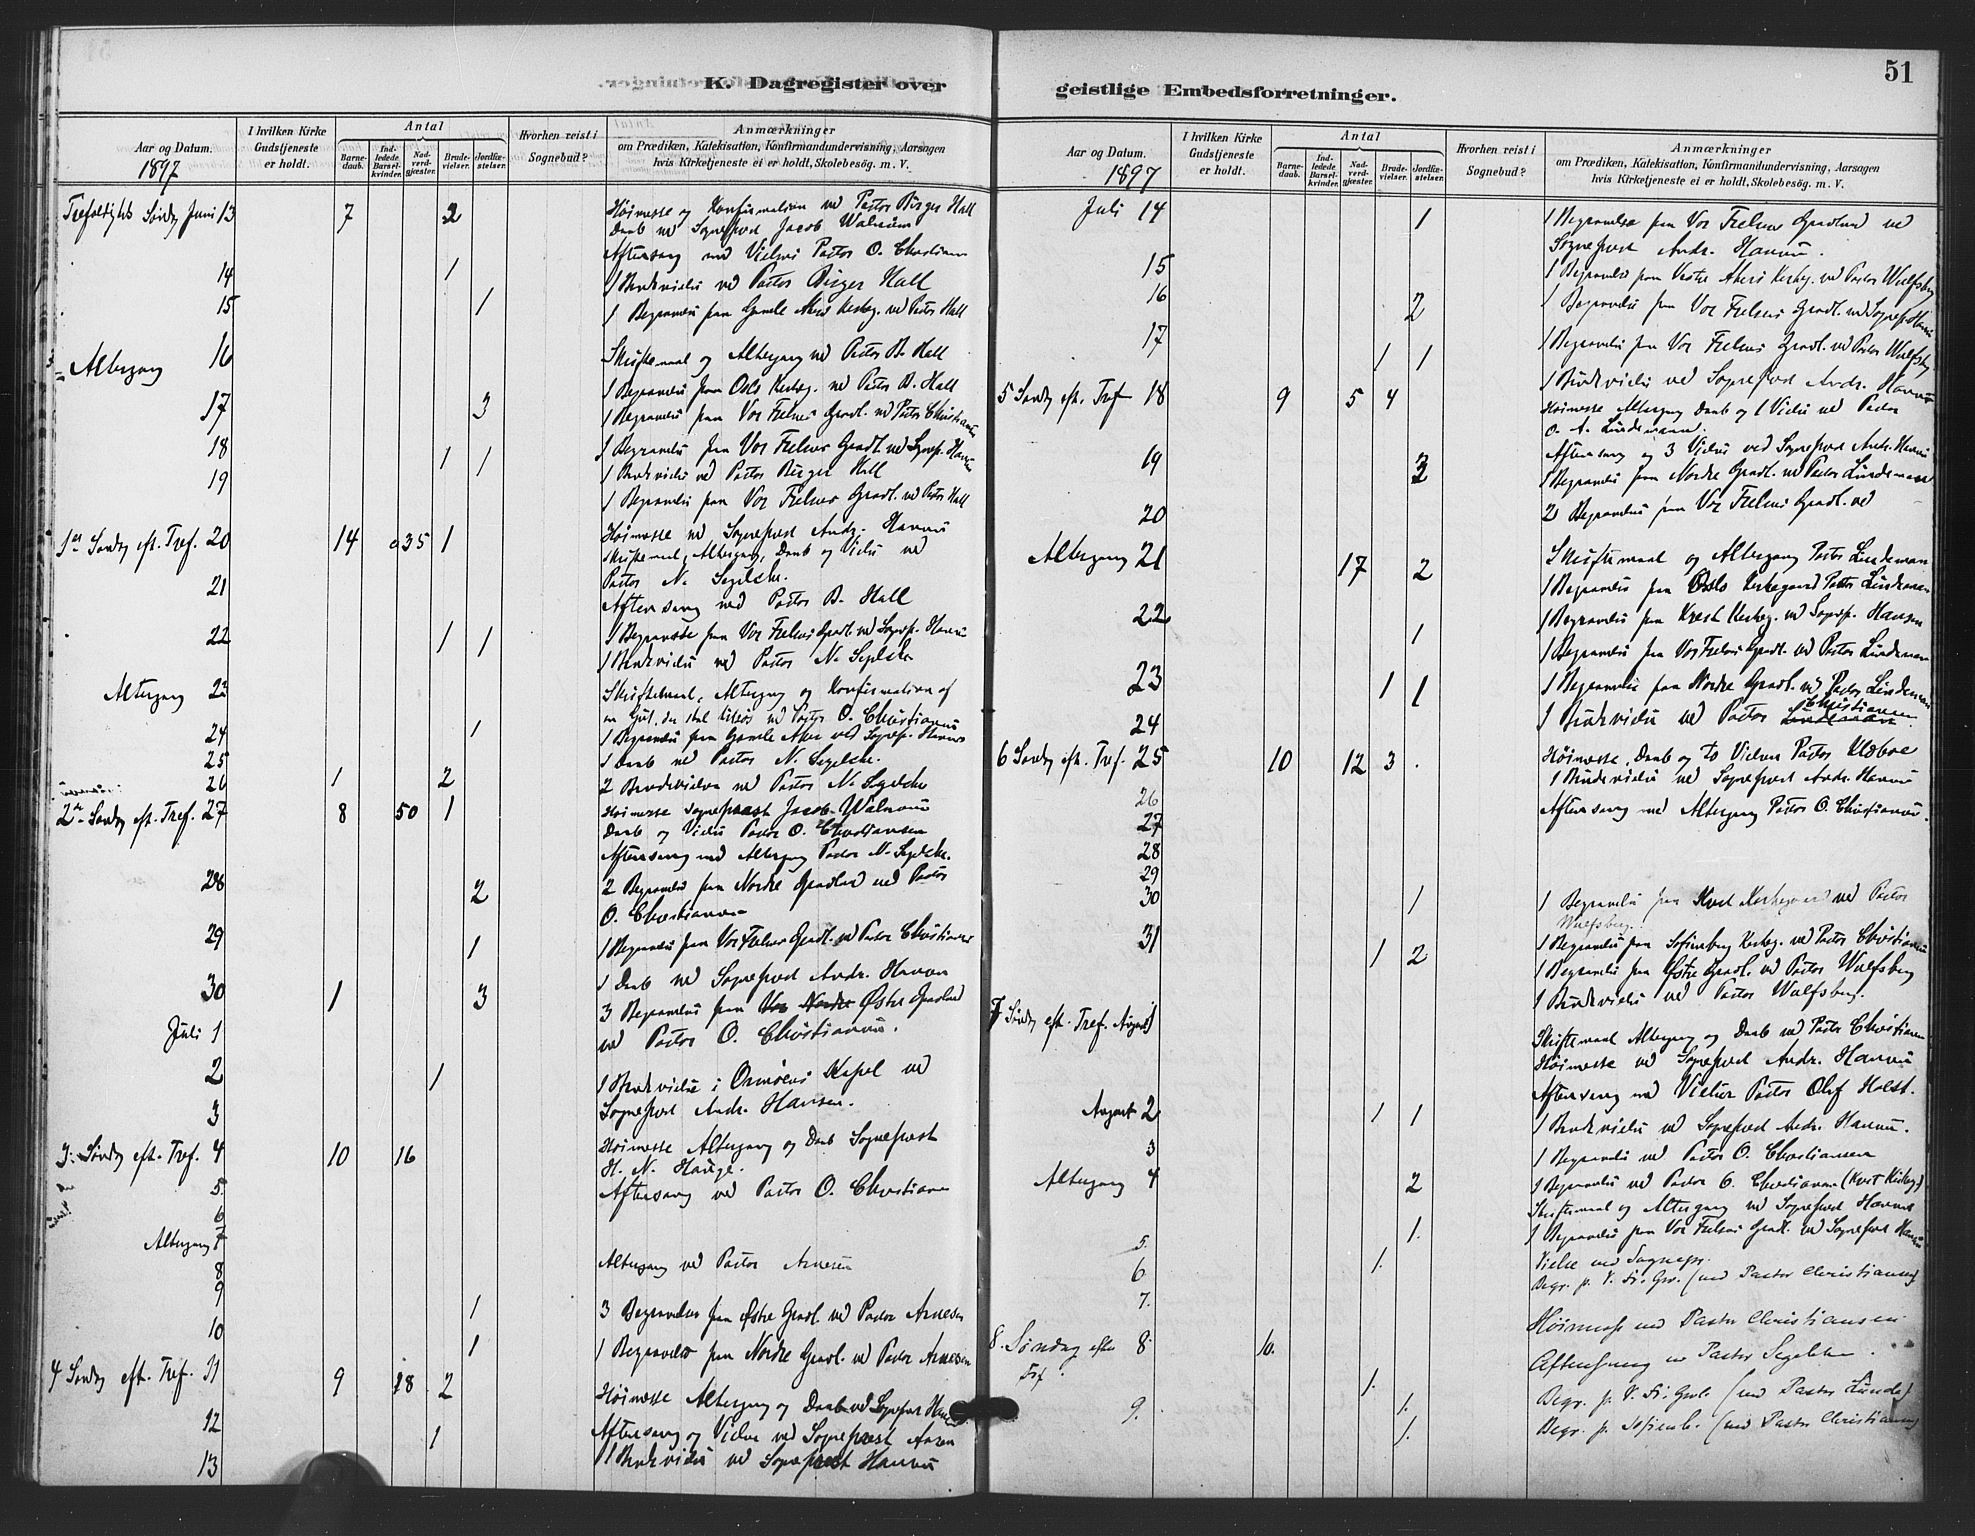 K. Dagregister over
Aar og Datum.
1897
I hvilken Kirke Gudstjeneste er holdt.
Antal
Barnedaab.
Indledede Barselkvinder.
Nadverdgjæster.
Brudevielser.
Jordfæstelser.
Hvorhen reist i Sognebud?
Anmærkninger
om Prædiken, Katekisation, Konfirmandundervisning, Aarsagen
hvis Kirketjeneste ei er holdt, Skolebesøg. m. V.
Trefoldigheds Søndag Juni 13 7 2 Høimesse og Konfirmation ved Pastor Birger Hall
Daab ved Sognepræst Jacob Walnum
Aftensang med Vielser Pastor O. Christiansen
14 1 1 Brudevielse ved Pastor Birger Hall
15 1 1 Begravelse fra Gamle Akers Kirkeg. ved Pastor Hall
Altergang 16 Skriftemaal og Altergang ved Pastor B. Hall
1 Begravelse fra Oslo Kirkeg. ved Pastor B. Hall
17 3 1 Begravelse fra Vor Frelsers Gravl. ved Pastor Christiansen
18 1 1 1 Begravelse fra Vor Frelsers Gravl. ved Sognep. Hansen
1 Brudevielse ved Pastor Birger Hall
19 1 Begravelse fra Vor Frelsers Gravl. ved Pastor Hall
1ste Søndag eft. Tref. 20 14 35 1 Høimesse ved Sognepræst Andr. Hansen
Skriftemaal, Altergang, Daab og Vielse ved
Pastor N. Segelcke.
21 Aftensang ved Pastor B. Hall
22 1 1 1 Begravelse fra Vor Frelsers Gravl. ved Sognep. Hansen
1 Brudevielse ved Pastor N. Segelcke
Altergang 23 Skriftemaal, Altergang og Konfirmation af
en Gut, der skal tilsøs ved Pastor O. Christiansen
24 1 1 Begravelse fra Gamle Aker ved Sognep. Hansen
25 1 Daab ved Pastor N. Segelcke.
26 1 2 2 Brudevielser ved Pastor N. Segelcke
2den Søndag eft. Tref. 27 8 50 1 Høimesse Sognepræst Jacob Walnum
Daab og Vielse Pastor O. Christiansen
Aftensang med Altergang Pastor N. Segelcke.
28 2 2 Begravelse fra Nordre Gravlund ved Pastor
O. Christiansen
29 1 1 Begravelse fra Vor Frelsers Gravl. ved Pastor Christiansen
1 Daab ved Sognepræst Andr. Hansen
30 1 3 3 Begravelse fra Vor Nordre Østre Gravlund
Juli 1 ved Pastor O. Christiansen.
2 1 1 Brudevielse i Ormøens Kapel ved
3 Sognepræst Andr. Hansen.
3. Søndag eft. Tref. 4 10 16 Høimesse Altergang og Daab Sognepræst
H. N. Hauge.
5 Aftensang ved Pastor O. Christiansen
6
Altergang 7 Altergang ved Pastor Arnesen
8
9 1 3 Begravelser fra Østre Gravl. ved Pastor Arnesen
10 1 1 Begravelse fra Nordre Gravl. ved Pastor Arnesen
4 Søndag eft. Tref. 11 9 18 2 Høimesse Altergang og Daab ved Sognepræst Hansen
12 Aftensang og Vielse ved Sognepræst
13 1 1 Brudevielse ved Sognepræst Hansen
51
geistlige Embedsforretninger.
Aar og Datum.
1897
I hvilken Kirke Gudstjeneste er holdt.
Antal
Barnedaab.
Indledede Barselkvinder.
Nadverdgjæster.
Brudevielser.
Jordfæstelser.
Hvorhen reist i Sognebud?
Anmærkninger
om Prædiken, Katekisation, Konfirmandundervisning, Aarsagen
hvis Kirketjeneste ei er holdt, Skolebesøg. m. V.
Juli 14 1 1 Begravelse fra Vor Frelsers Gravlund ved
Sognepræst Andr. Hansen.
15 1 Begravelse fra Vestre Akers Kirkeg. ved Pastor Wulfsberg
16 2 1 Begravelse fra Vor Frelsers Gravl. ved Sognep. Hansen
17 1 1 1 Begravelse fra Vor Frelsers Gravl. ved Pastor Wulfsberg
1 Brudevielse ved Sognepræst Andr. Hansen
5 Søndag eft. Tref 18 9 5 4 Høimesse Altergang Daab og 1 Vielse ved Pastor
O. A. Lindemann.
Aftensang og 3 Vielser ved Sognepræst Andr. Hansen
19 3 1 Begravelse fra Nordre Gravl. ved Pastor Lindemann
20 2 Begravelse fra Vor Frelsers Gravl. ved
Altergang 21 17 2 Skriftemaal og Altergang Pastor Lindeman
1 Begravelse fra Oslo Kirkegaard Pastor Lindeman
22 1 Begravelse fra Krist Kirkeg. ved Sognep. Hansen
1 1 Begravelse fra Vor Frelsers Gravl. ved Pastor Lindeman
23 1 1 1 Begravelse fra Nordre Gravl. ved Pastor Lindeman
24 1 Brudevielse ved Pastor Lindeman Christiansen
6 Søndag eft. Tref. 25 10 12 3 Høimesse, Daab og to Vielser Pastor Klæboe
1 Brudevielse ved Sognepræst Andr. Hansen
26 Aftensang med Altergang Pastor O. Christiansen.
27
28
29
30 1 1 Begravelse fra Krist Kirkegaard ved Pastor
Wulfsberg.
31 1 2 1 Begravelse fra Sofienberg Kirkeg. ved Pastor Christiansen
1 Begravelse fra Østre Gravl. ved Pastor Wulfsberg
1 Brudevielse ved Pastor Wulfsberg.
7 Søndag eft. Tref. August 1 Skriftemaal Altergang og Daab ved Pastor Christiansen
Høimesse ved Sognepræst Andr. Hansen
Aftensang med Vielser Pastor Olaf Holst.
August 2 1 1 1 Brudevielse ved Sognepræst Andr. Hansen.
3 1 Begravelse ved Pastor O. Christiansen
Altergang 4 2 1 Begravelse ved Pastor O. Christiansen (Krist Kirkeg.)
Skriftemaal og Altergang ved Sognepræst Hansen
1. 1 Begravelse fra Vor Frelsers Gravl. ved Sognepræst Hansen
5. 1. Vielse ved Sognepr.
6 Begr. p. V. Fr. Grv. (ved Pastor Christiansen)
7.
8. Søndag efter 8. 10. Høimesse ved Pastor Christiansen.
Tref. Aftensang v. Pastor Segelcke.
1. 1. Begr. p. V. Fr. Gravl. (ved Pastor Lunde)
9. 1. Begr. p. Sofienb. (ved Pastor Christiansen)